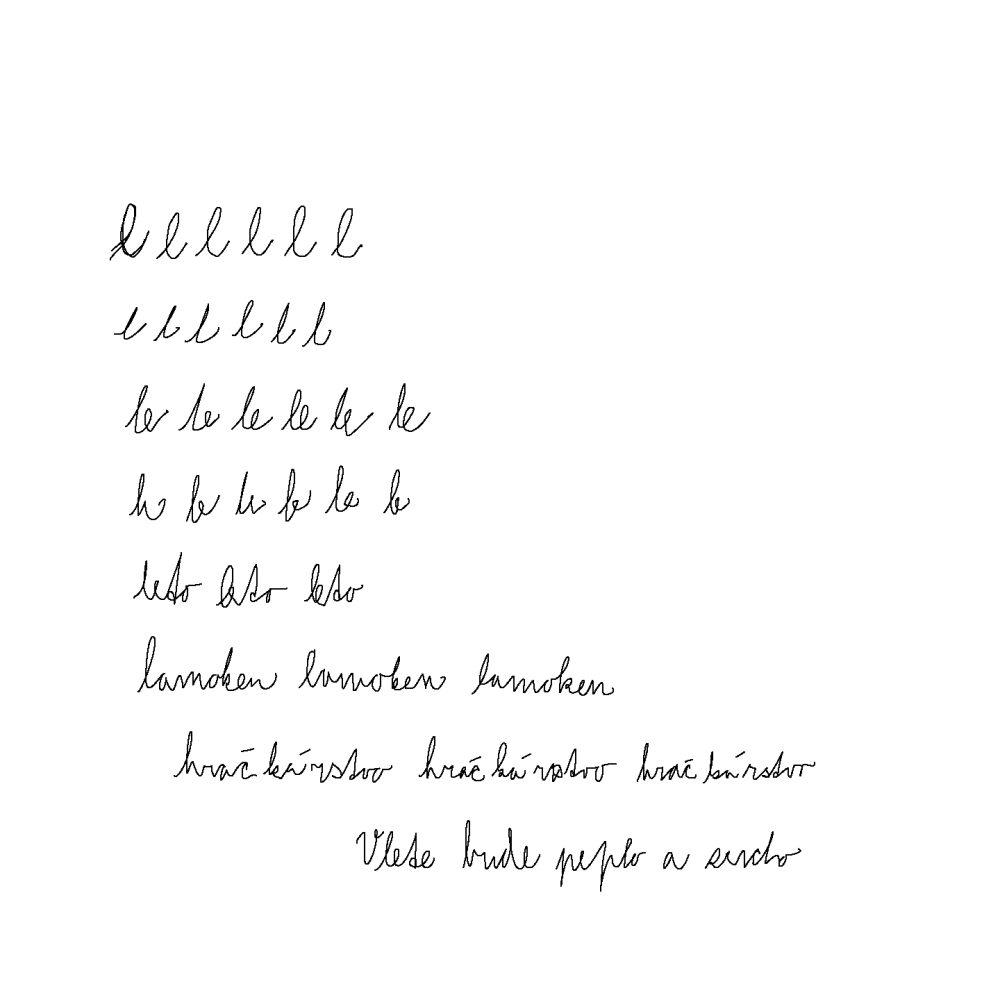 l l l l l l
l l l l l l
le le le le le le
le le le le le le
leto leto leto
lamoken lamoken lamoken
hračkárstvo hračkárstvo hračkárstvo
V lete bude peplo a sucho